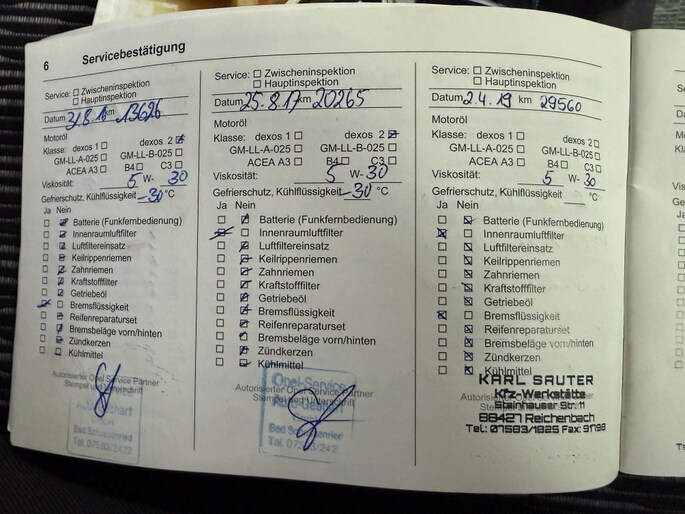 6 Servicebestätigung
Service: Zwischeninspektion
Hauptinspektion
Datum 31.8.16 km 13626
Motoröl
Klasse: dexos 1 dexos 2
GM-LL-A-025 GM-LL-B-025
ACEA A3 B4 C3
Viskosität: 5 W- 30
Gefrierschutz, Kühlflüssigkeit -30 °C
Ja Nein
Batterie (Funkfernbedienung)
Innenraumluftfilter
Luftfiltereinsatz
Keilrippenriemen
Zahnriemen
Kraftstofffilter
Getriebeöl
Bremsflüssigkeit
Reifenreparaturset
Bremsbeläge vorn/hinten
Zündkerzen
Kühlmittel
Autorisierter Opel Service Partner
Stempel und Unterschrift
Bad Schussenried
Tel. 07583/2422
Service: Zwischeninspektion
Hauptinspektion
Datum 25.8.17 km 20265
Motoröl
Klasse: dexos 1 dexos 2
GM-LL-A-025 GM-LL-B-025
ACEA A3 B4 C3
Viskosität: 5 W- 30
Gefrierschutz, Kühlflüssigkeit -30 °C
Ja Nein
Batterie (Funkfernbedienung)
Innenraumluftfilter
Luftfiltereinsatz
Keilrippenriemen
Zahnriemen
Kraftstofffilter
Getriebeöl
Bremsflüssigkeit
Reifenreparaturset
Bremsbeläge vorn/hinten
Zündkerzen
Kühlmittel
Opel-Service
Autorisierter Opel Service Partner
Stempel und Unterschrift
Bad Schussenried
Tel. 07583/242
Service: Zwischeninspektion
Hauptinspektion
Datum 2.4.19 km 29560
Motoröl
Klasse: dexos 1 dexos 2
GM-LL-A-025 GM-LL-B-025
ACEA A3 B4 C3
Viskosität: 5 W- 30
Gefrierschutz, Kühlflüssigkeit °C
Ja Nein
Batterie (Funkfernbedienung)
Innenraumluftfilter
Luftfiltereinsatz
Keilrippenriemen
Zahnriemen
Kraftstofffilter
Getriebeöl
Bremsflüssigkeit
Reifenreparaturset
Bremsbeläge vorn/hinten
Zündkerzen
Kühlmittel
KARL SAUTER
Kfz-Werkstätte
Steinhauser Str. 11
88427 Reichenbach
Tel.: 07583/1825 Fax: 91798